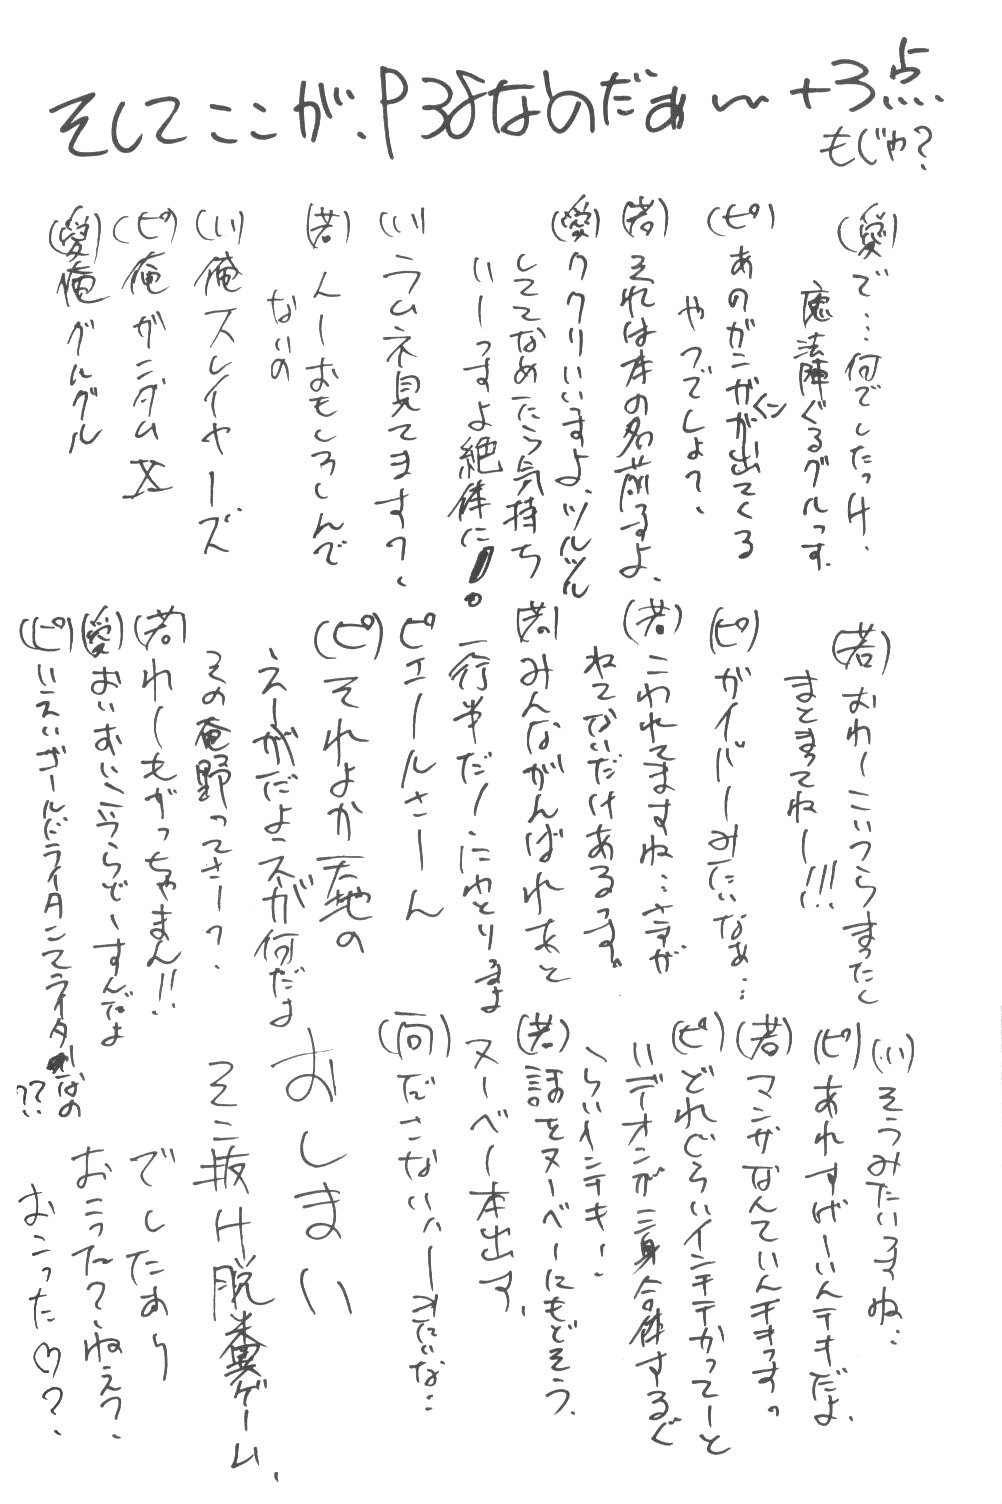 そしてここが、P38なのだぁ〜 +3点
もじゃ?
(愛)で…何でしたっけ、
魔法陣ぐるグルっす。
(ピ)あのガンガがくン出てくる
やつでしょ?、
(若)それは本の名前るよ、
(愛)ククリいいますよ、ツルツル
しててなめたら気持ち
いーっすよ絶体に!。
(ハ)ラムネ見てます?、
(若)んーおもしろいんで
ないの
(ハ)俺スレイヤーズ
(ピ)俺ガンダムX
(愛)俺グルグル
(若)おわーこいつらまったく
まとまってねー!!!
(ピ)ガイバーみたいなぁ…
(若)こわれてますね…さすが
ねてないだけあるっす。
(若)みんながんばれあと
一行半だ!にわとりるよ
ピエールさーん
(ピ)それよか天地の
えーがだよ天が何だよ
その庵野ってさー?、
(若)わーもがっちゃまん!!
(愛)おいおいこいつらどーすんだよ
(ピ)いえいゴールドライタンてライターなの
??
(ハ)そうみたいすね…
(ピ)あれすげーいんテキだよ、
(若)マンガなんていんチキっす。
(ピ)どれぐらいインチキかってーと
イデオンが三身合体するぐ
らいインチキ!
(若)話をヌーベーにもどそう、
ヌーベー本出す、
(向)ださないハーみたいな…
おしまい
そこ抜け脱糞ゲーム、
でしたあり
おこった?、ねぇ?、
おこった♡?、